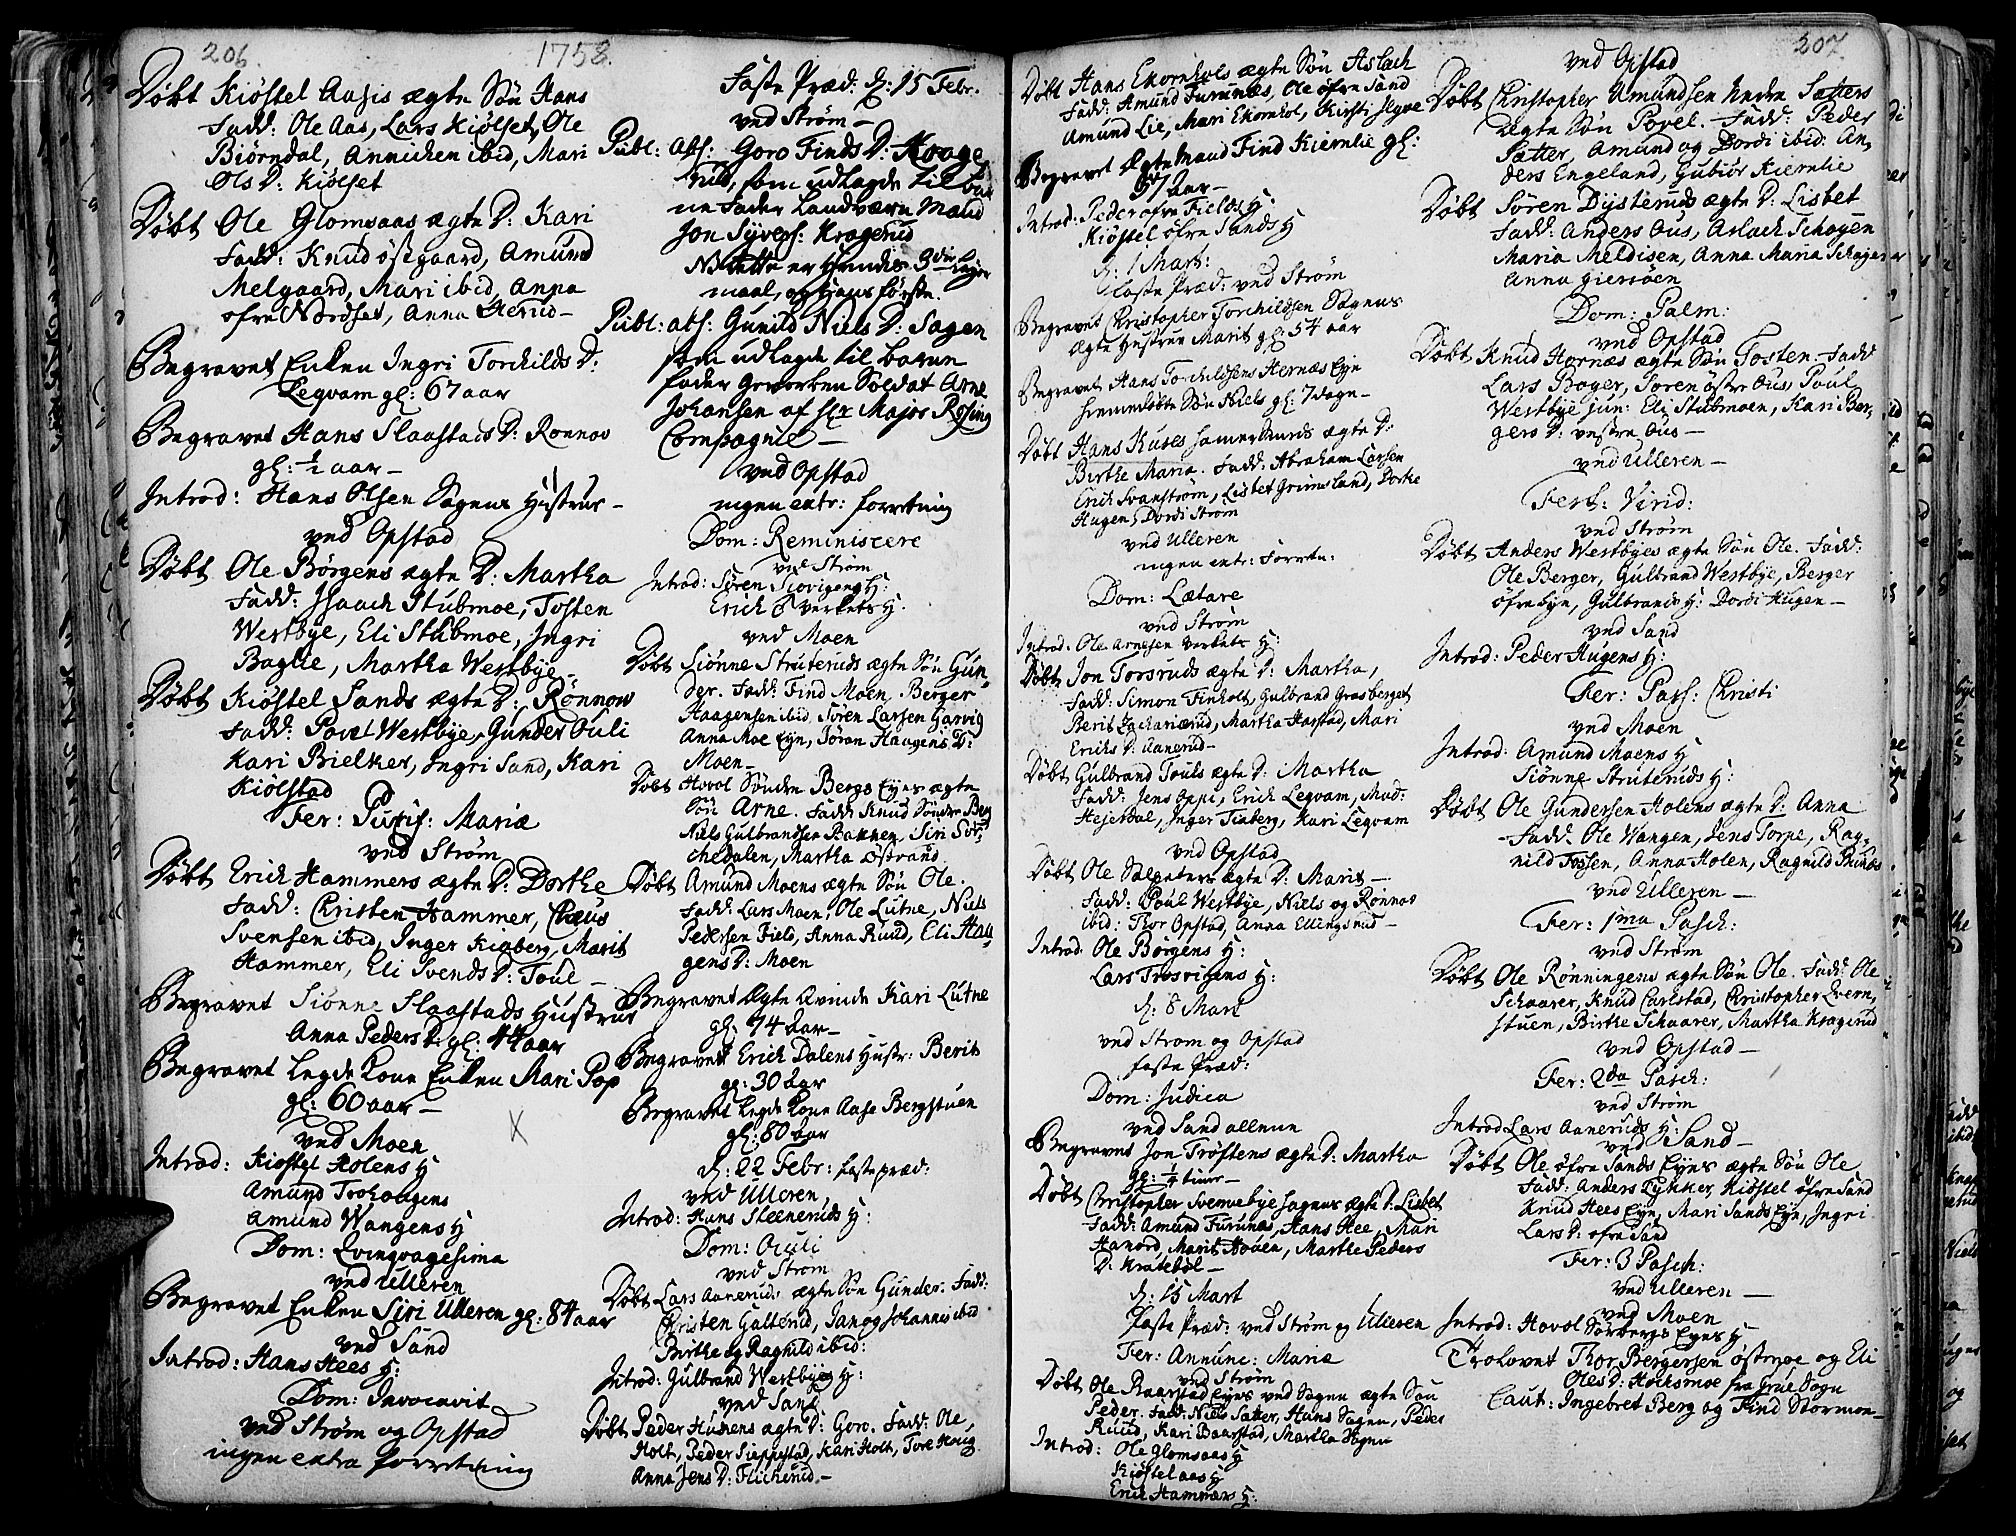 206.
1758.
Døbt Kiøstel Aasis ægte Søn Hans
Fadd: Ole Aas, Lars Kiølset, Ole
Biørndal, Annichen ibid, Mari
Ols D: Kiølset
Døbt Ole Glomsaas ægte D: Kari
Fadd: Knud østgaard, Amund
Melgaard, Mari ibid, Anna
ofre Nordset, Anna Herud
Begravet Enken Ingri Torchilds D:
Leqvam gl: 67 aar
Begravet Hans Slaastads D: Ronnov
gl: ½ aar
Introd: Hans Olsen Sagens Hustrue
ved Opstad
Døbt Ole Børgens ægte D: Martha
Fadd: Isaach Stubmoe, Tosten
Westbye, Eli Stubmoe, Ingri
Baglie, Martha Westbye
Døbt Kiøstel Sands ægte D: Rønnow
Fadd: Povel Westbye, Gunder Ouli
Kari Bielker, Ingri Sand, Kari
Kiølstad
Fer: Purif: Mariæ
ved Strøm
Døbt Erich Hammers ægte D: Dorthe
Fadd: Christen Hammer,
Svensen ibid, Inger Kinberg, Marit
Hammer, Eli Svends D: Toul
Begravet Siønne Slaastads Hustrue
Anna Peders D. gl: 44 aar
Begravet Legde Kone Enken Mari Pop
gl: 60 aar
ved Moen
Introd: Kiøstel Holens H
Amund Trohougens
Amund Wangens H
Dom: Qvinqvagesima
ved Ulleren
Begravet Enken Siri Ulleren gl: 84 aar
ved Sand
Introd: Hans Hees H:
Dom: Invocavit
ved Strøm og Opstad
ingen extra forretning
Faste Præd: d: 15 Febr.
ved Strøm
Publ: abs: Goro Finds D: Kroge
rud, som udlagde til bar
ne Fader Landværn Mand
Jon Syvers: Kragerud
NB dette er hendes 3die Leger
maal, og Hans første.
Publ: abs: Gunild Niels D: Sagen
som udlagde til barne
fader Geworben Soldat Arne
Johansen af Hr Major Rosing
Compagnie
ved Opstad
ingen extr: forretning
Dom: Reminiscere
ved Strøm
Introd: Søren H:
Erich verkets H.
ved Moen
Døbt Siønne Struteruds ægte Søn Gun
der. Fadd: Find Moen, Berger
Haagensen ibid, Søren Larsen Garvig
Anna Moe Eyn, Jøran Haagens D:
Moen
Døbt Hovol Søndre Bergs Eyes ægte
Søn Arne. Fadd: Knud Søndre Berg
Niels Gulbrandsen Bakken, Siri Tor
chedalen, Martha østrand
Døbt Amund Moens ægte Søn Ole.
Fadd: Lars Moen, Ole Lutne, Niels
Pedersen Field, Anna Ruud, Eli Haa
gens D: Moen
Begravet ægte Qvinde Kari Lutne
gl: 74 aar
Begravet Erich Dalens Hustr: Berit
gl: 30 aar
Begravet Legde Kone Aase Bergstuen
gl: 80 aar
d: 22 Febr: faste præd:
ved Ulleren
Introd: Hans Steeneruds H:
Dom: Oculi
ved Strøm
Døbt Lars Aaneruds ægte Søn Gunder. Fadd:
Christen Galterud, Jan og Johannes ibid
Birthe og Ragnild ibid:
Introd: Gulbrand Westbyes H:
ved Sand
Døbt Peder Husens ægte D: Goro. Fadd: Ole
Holt, Peder Sieppestad, Kari Holt, Tore Haug
Anna Jens D: Flicherud
207.
Døbt Hans Ekornhols ægte Søn Aslach
Fadd: Amund Furunæs, Ole øfre Sand
Amund Lie, Mari Ekornhol, Kirsti
Begravet Ægte Mand Find Kiernlie gl:
57 aar
Introd: Peder ofre Fields H
Kiøstel øfre Sands H
d: 1 Mart:
faste Præd: ved Strøm
Begravet Christopher Torchildsen Sagens
ægte Hustrue Marit gl: 54 aar
Begravet Hans Torchildsens Hernæs Eyn
hiemmedøbte Søn Niels gl: 7 dage
Døbt Hans Kuses hamersmeds ægte D:
Birthe Maria. Fadd: Abraham Larsen
Erich Svanstrøm, Lisbet Grimsland, Dorte
Haugen, Dordi Strøm
ved Ulleren
ingen extr: Forretn:
Dom: Lætare
ved Strøm
Introd. Ole Arnesen Verkets H:
Døbt Jon Torsruds ægte D: Martha,
Fadd: Simon Finholt, Gulbrand Grasberget
Berit Zachariærud, Martha Harstad, Mari
Erichs D: Aanerud
Døbt Gulbrand Touls ægte D: Martha
Fadd: Jens Oppi, Erich Leqvam, Mad:
Hejerdal, Inger Finberg, Kari Leqvam
ved Opstad
Døbt Ole ægte D: Marit
Fadd: Poul Westbye, Niels og Rønnov
ibid: Thor Opstad, Anna Ellingsrud
Introd. Ole Børgens H:
Lars H:
d: 8 Mart
ved Strøm og Opstad
faste Præd:
Dom: Judica
ved Sand allene
Begravet Jon Trøftens ægte D: Martha
gl: ¼ time
Døbt Christopher Svennebye Sagens ægte D: Lisbet
Fadd: Amund Furunæs, Hans Hee, Mari
Hanord, Marit Houen, Marthe Peders
D: Kratebøl
d: 15 Mart
faste Præd: ved Strøm og Ulleren
Fer: Annunc: Mariæ
ved Strøm
Døbt Ole Raarstad Eyes ved Sagen ægte Søn
Peder. Fadd: Niels Sætter, Hans Sagen, Peder
Ruud, Kari Baarstad, Martha Sagen
Introd: Ole Glomsaas H
Kiøstel aas H
Erich Hammers H:
ved Opstad
Døbt Christopher Amundsen Nedre Sætters
ægte Søn Povel. Fadd: Peder
Sætter, Amund og Dordi ibid. An
ders Engeland, Gubiør Kiernlie
Døbt Søren Dysteruds ægte D: Lisbet
Fadd: Anders Ous, Aslach Schøyen
Maria Meldisen, Anna Maria Schøyen
Anna Giersøen
Dom: Palm:
ved Opstad
Døbt Knud Hornæs ægte Søn Tosten. Fadd
Lars Boger, Søren østre Ous, Poul
Westbye jun: Eli Stubmoen, Kari Ber
gers D: vestre Ous
ved Ulleren
Fest: Virid:
ved Strøm
Døbt Anders Westbyes ægte Søn Ole. Fadd:
Ole Berger, Gulbrand Westbye, Berger
øfrebye, Gulbrands H: Dordi Haugen
ved Sand
Introd: Peder Haugens H:
Fer: Pass: Christi
ved Moen
Introd: Amund Moens H
Siønne Struteruds H:
Døbt Ole Gundersen Holens ægte D: Anna
Fadd: Ole Wangen, Jens Torpe, Rag
nild Tossen, Anna Holen, Ragnild
ved Ulleren
Fer: 1ma Pasch:
ved Strøm
Døbt Ole Rønningens ægte Søn Ole. Fadd: Ole
Schaarer, Knud Carlstad, Christopher Qvern
stuen, Birthe Schaarer, Martha Kragerud
ved Opstad
Fer: 2da Pasch:
ved Strøm
Introd Lars Aaneruds H:
ved Sand
Døbt Ole øfre Sands Eyes ægte Søn Ole
Fadd: Anders Lykker, Kiøstel øfre Sand
Knud Hees Eyn, Mari Sands Eyn, Ingri
Lars D: ofre Sand
Fer: 3 Pasch:
ved Ulleren
ved Moen
Introd: Hovol Sørbergs Eyes H
Trolovet Thor Bergersen østmoe og Eli
Oles D: Hocksmoe fra Grue Sogn
Caut: Ingebret Berg og Find Stormoen